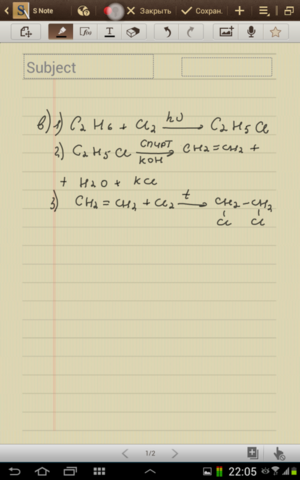 S Note
Закрыть
Сохран.
Subject
в) 1) C2H6 + Cl2 hν→ C2H5Cl
2) C2H5Cl спирт/KOH→ CH2=CH2 +
+ H2O + KCl
3) CH2=CH2 + Cl2 t→ CH2-CH2
Cl Cl
1/2
22:05